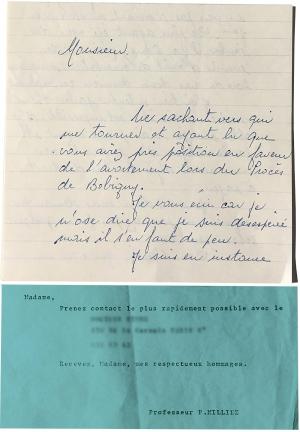 Monsieur
Ne sachant vers qui
me tourner et ayant lu que
vous avez pris position en faveur
de l'avortement lors du Procès
de Bobigny.
Je vous écris car je
n'ose dire que je suis désespérée
mais il s'en faut de peu.
Je suis en instance
Madame,
Prenez contact le plus rapidement possible avec le
Recevez, Madame, mes respectueux hommages.
Professeur P.MILLIEZ